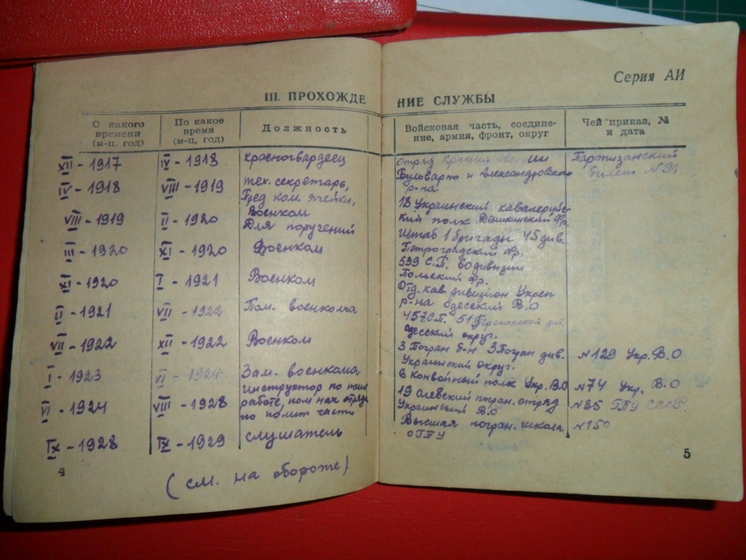 Серия АИ
III. ПРОХОЖДЕНИЕ СЛУЖБЫ
С какого времени (м-ц, год)
По какое время (м-ц, год)
Должность
Войсковая часть, соединение, армия, фронт, округ
Чей приказ, № и дата
VII - 1917 IV - 1918 красногвардеец
IV - 1918 VIII - 1919 тех. секретарь,
Пред. ком. ячейки,
Военком
VIII - 1919 II - 1920 Для поручений
III - 1920 XI - 1920 Военком
XI - 1920 I - 1921 Военком
II - 1921 VII - 1922 Пом. военкома
VII - 1922 XII - 1922 Военком
I - 1923 VI - 1924 Зам. военкома
инструктор по
VI - 1924 VIII - 1928 работе, пом нач отряда
по полит части
IX - 1928 IX - 1929 слушатель
4
(см. на обороте)
Отряд Красной Партизанский
Бульварно и Александровского билет №
р-на
1й Украинский кавалерийс-
кий полк Деникинский Фр.
Штаб 1 бригады 45 див.
Петроградский Фр.
539 С.П. 60 дивизии
Польский Фр.
Отд. кав. дивизион Укреп
р-на Одесский В.О
457 С.П. 51 Перекопской див.
Одесский округ.
3 Погран б-н 3 Погран див. №129 Укр. В.О
Украинский округ.
6 Конвойный полк Укр. В.О №74 Укр. В.О
19 Олевский погран. отряд №85 ГПУ
Украинский В.О
Высшая погран. школа №150
ОГПУ
5